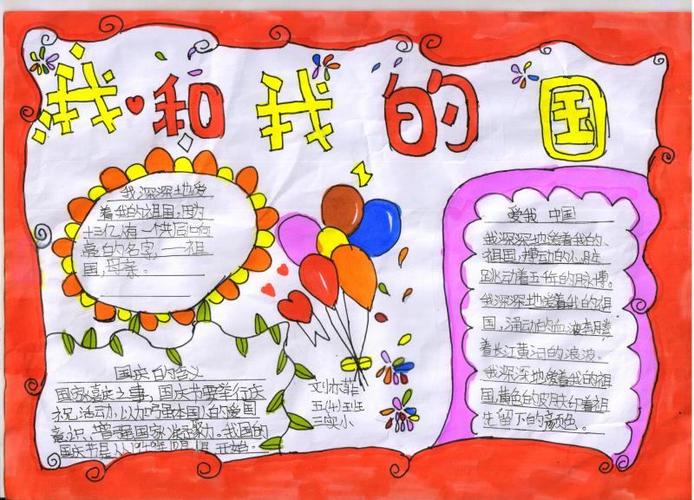 我和我的国
我深深地爱
着我的祖国,因为
十三亿有一个共同响
亮的名字,——祖
国,母亲。
爱我 中国
我深深地爱着我的
祖国,搏动的小脏
跳动着五千年的脉搏。
我深深地爱着我的祖
国,涌动的血液奔腾
着长江黄河的浪波。
我深深地爱着我的祖
国,黄色的皮肤印着祖
先留下的颜色。
国庆日的含义
国家喜庆之事,国庆节要举行庆
祝活动,以加强本国人的爱国
意识,增强国家凝聚力。我国的
国庆节是从1949年10月1日开始。
菲
五(4)班
三实小